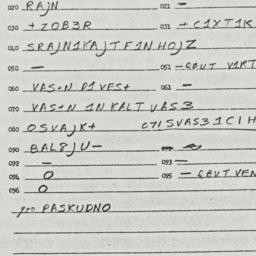 020 RAJN 021 –
030 + ZOB3R 031 + C1XT1K
040 SRAJN1KAJTF1NHOJZ
050 – 051 –GBUT V1KT
060 VAS+N D1VES+ 061 –
070 VAS+N 1N KALT VAS3
080 OSVAJK+ C71SVAS31C1H
090 BAL8JU–
092 – 093 –
094 O 095 – GBUT VEN
096 O
900 PASKUDNO